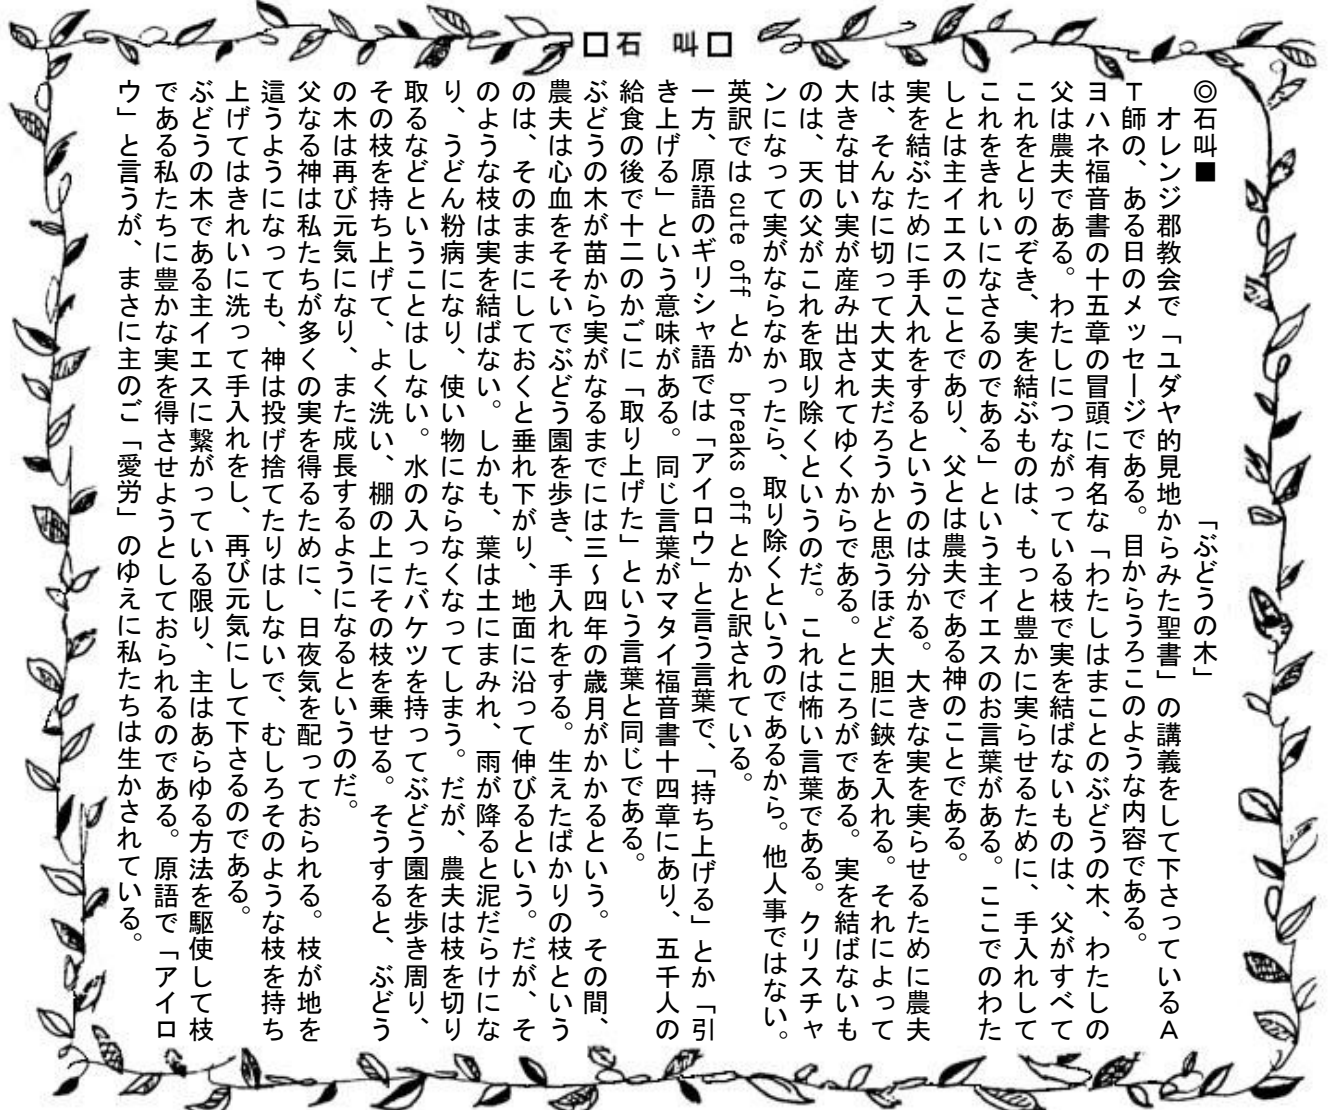 □石　叫□
◎石叫■　　　　　　　　　「ぶどうの木」
　オレンジ郡教会で「ユダヤ的見地からみた聖書」の講義をして下さっているＡ
Ｔ師の、ある日のメッセージである。目からうろこのような内容である。
ヨハネ福音書の十五章の冒頭に有名な「わたしはまことのぶどうの木、わたしの
父は農夫である。わたしにつながっている枝で実を結ばないものは、父がすべて
これをとりのぞき、実を結ぶものは、もっと豊かに実らせるために、手入れして
これをきれいになさるのである」という主イエスのお言葉がある。ここでのわた
しとは主イエスのことであり、父とは農夫である神のことである。
実を結ぶために手入れをするというのは分かる。大きな実を実らせるために農夫
は、そんなに切って大丈夫だろうかと思うほど大胆に鋏を入れる。それによって
大きな甘い実が産み出されてゆくからである。ところがである。実を結ばないも
のは、天の父がこれを取り除くというのだ。これは怖い言葉である。クリスチャ
ンになって実がならなかったら、取り除くというのであるから。他人事ではない。
英訳では cute off とか　breaks off とかと訳されている。
一方、原語のギリシャ語では「アイロウ」と言う言葉で、「持ち上げる」とか「引
き上げる」という意味がある。同じ言葉がマタイ福音書十四章にあり、五千人の
給食の後で十二のかごに「取り上げた」という言葉と同じである。
ぶどうの木が苗から実がなるまでには三～四年の歳月がかかるという。その間、
農夫は心血をそそいでぶどう園を歩き、手入れをする。生えたばかりの枝という
のは、そのままにしておくと垂れ下がり、地面に沿って伸びるという。だが、そ
のような枝は実を結ばない。しかも、葉は土にまみれ、雨が降ると泥だらけにな
り、うどん粉病になり、使い物にならなくなってしまう。だが、農夫は枝を切り
取るなどということはしない。水の入ったバケツを持ってぶどう園を歩き周り、
その枝を持ち上げて、よく洗い、棚の上にその枝を乗せる。そうすると、ぶどう
の木は再び元気になり、また成長するようになるというのだ。
父なる神は私たちが多くの実を得るために、日夜気を配っておられる。枝が地を
這うようになっても、神は投げ捨てたりはしないで、むしろそのような枝を持ち
上げてはきれいに洗って手入れをし、再び元気にして下さるのである。
ぶどうの木である主イエスに繋がっている限り、主はあらゆる方法を駆使して枝
である私たちに豊かな実を得させようとしておられるのである。原語で「アイロ
ウ」と言うが、まさに主のご「愛労」のゆえに私たちは生かされている。